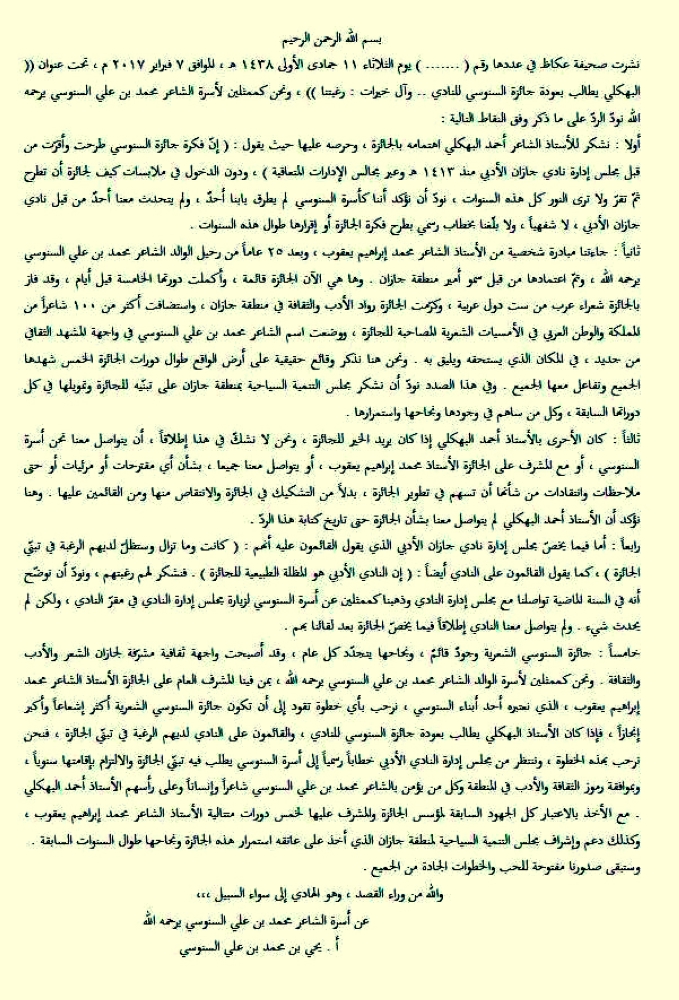 بسم الله الرحمن الرحيم
نشرت صحيفة عكاظ في عددها رقم ( ....... ) يوم الثلاثاء ١١ جمادى الأولى ١٤٣٨ هـ ، الموافق ٧ فبراير ٢٠١٧ م ، تحت عنوان ((
البهكلي يطالب بعودة جائزة السنوسي للنادي .. وآل خيرات : رغبتنا )) ، ونحن كممثلين لأسرة الشاعر محمد بن علي السنوسي يرحمه
الله نودّ الردّ على ما ذكر وفق النقاط التالية :
أولا : نشكر للأستاذ الشاعر أحمد البهكلي اهتمامه بالجائزة ، وحرصه عليها حيث يقول : ( إنّ فكرة جائزة السنوسي طرحت وأقرّت من
قبل مجلس إدارة نادي جازان الأدبي منذ ١٤١٣ هـ وعبر مجالس الإدارات المتعاقبة ) ، ودون الدخول في ملابسات كيف لجائزة أن تطرح
ثمّ تقرّ ولا ترى النور كل هذه السنوات ، نودّ أن نؤكد أننا كأسرة السنوسي لم يطرق بابنا أحدٌ ، ولم يتحدث معنا أحدٌ من قبل نادي
جازان الأدبي ، لا شفهياً ، ولا بلّغنا بخطاب رسمي بطرح فكرة الجائزة أو إقرارها طوال هذه السنوات .
ثانياً : جاءتنا مبادرة شخصية من الأستاذ الشاعر محمد إبراهيم يعقوب ، وبعد ٢٥ عاماً من رحيل الوالد الشاعر محمد بن علي السنوسي
يرحمه الله ، وتمّ اعتمادها من قبل سمو أمير منطقة جازان . وها هي الآن الجائزة قائمة ، وأكملت دورتها الخامسة قبل أيام ، وقد فاز
بالجائزة شعراء عرب من ست دول عربية ، وكرّمت الجائزة رواد الأدب والثقافة في منطقة جازان ، واستضافت أكثر من ١٠٠ شاعراً من
المملكة والوطن العربي في الأمسيات الشعرية المصاحبة للجائزة ، ووضعت اسم الشاعر محمد بن علي السنوسي في واجهة المشهد الثقافي
من جديد ، في المكان الذي يستحقه ويليق به . ونحن هنا نذكر وقائع حقيقية على أرض الواقع طوال دورات الجائزة الخمس شهدها
الجميع وتفاعل معها الجميع . وفي هذا الصدد نودّ أن نشكر مجلس التنمية السياحية بمنطقة جازان على تبنّيه للجائزة وتمويلها في كل
دوراتها السابقة ، وكل من ساهم في وجودها ونجاحها واستمرارها .
ثالثاً : كان الأحرى بالأستاذ أحمد البهكلي إذا كان يريد الخير للجائزة ، ونحن لا نشكّ في هذا إطلاقاً ، أن يتواصل معنا نحن أسرة
السنوسي ، أو مع المشرف على الجائزة الأستاذ محمد إبراهيم يعقوب ، أو يتواصل معنا جميعا ، بشأن أي مقترحات أو مرئيات أو حتى
ملاحظات وانتقادات من شأنها أن تسهم في تطوير الجائزة ، بدلاً من التشكيك في الجائزة والانتقاص منها ومن القائمين عليها . وهنا
نؤكد أن الأستاذ أحمد البهكلي لم يتواصل معنا بشأن الجائزة حتى تاريخ كتابة هذا الردّ .
رابعاً : أما فيما يخصّ مجلس إدارة نادي جازان الأدبي الذي يقول القائمون عليه أنهم : ( كانت وما تزال وستظلّ لديهم الرغبة في تبنّي
الجائزة ) ، كما يقول القائمون على النادي أيضاً : ( إن النادي الأدبي هو المظلة الطبيعية للجائزة ) . فنشكر لهم رغبتهم ، ونودّ أن نوضّح
أنه في السنة الماضية تواصلنا مع مجلس إدارة النادي وذهبنا كممثلين عن أسرة السنوسي لزيارة مجلس إدارة النادي في مقرّ النادي ، ولكن لم
يحدث شيء . ولم يتواصل معنا النادي إطلاقاً فيما يخصّ الجائزة بعد لقائنا بهم .
خامساً : جائزة السنوسي الشعرية وجودٌ قائمٌ ، ونجاحها يتجدّد كل عام ، وقد أصبحت واجهة ثقافية مشرّفة لجازان الشعر والأدب
والثقافة . ونحن كممثلين لأسرة الوالد الشاعر محمد بن علي السنوسي يرحمه الله ، بمن فينا المشرف العام على الجائزة الأستاذ الشاعر محمد
إبراهيم يعقوب ، الذي نعتبره أحد أبناء السنوسي ، نرحب بأي خطوة تقود إلى أن تكون جائزة السنوسي الشعرية أكثر إشعاعاً وأكبر
إنجازاً ، فإذا كان الأستاذ البهكلي يطالب بعودة جائزة السنوسي للنادي ، والقائمون على النادي لديهم الرغبة في تبنّي الجائزة ، فنحن
نرحب بهذه الخطوة ، وننتظر من مجلس إدارة النادي الأدبي خطاباً رسمياً إلى أسرة السنوسي يطلب فيه تبنّي الجائزة والالتزام بإقامتها سنوياً ،
وبموافقة رموز الثقافة والأدب في المنطقة وكل من يؤمن بالشاعر محمد بن علي السنوسي شاعراً وإنساناً وعلى رأسهم الأستاذ أحمد البهكلي
. مع الأخذ بالاعتبار كل الجهود السابقة لمؤسس الجائزة والمشرف عليها لخمس دورات متتالية الأستاذ الشاعر محمد إبراهيم يعقوب ،
وكذلك دعم وإشراف مجلس التنمية السياحية لمنطقة جازان الذي أخذ على عاتقه استمرار هذه الجائزة ونجاحها طوال السنوات السابقة .
وستبقى صدورنا مفتوحة للحب والخطوات الجادة من الجميع .
والله من وراء القصد ، وهو الهادي إلى سواء السبيل ،،،
عن أسرة الشاعر محمد بن علي السنوسي يرحمه الله
أ . يحيى بن محمد بن علي السنوسي